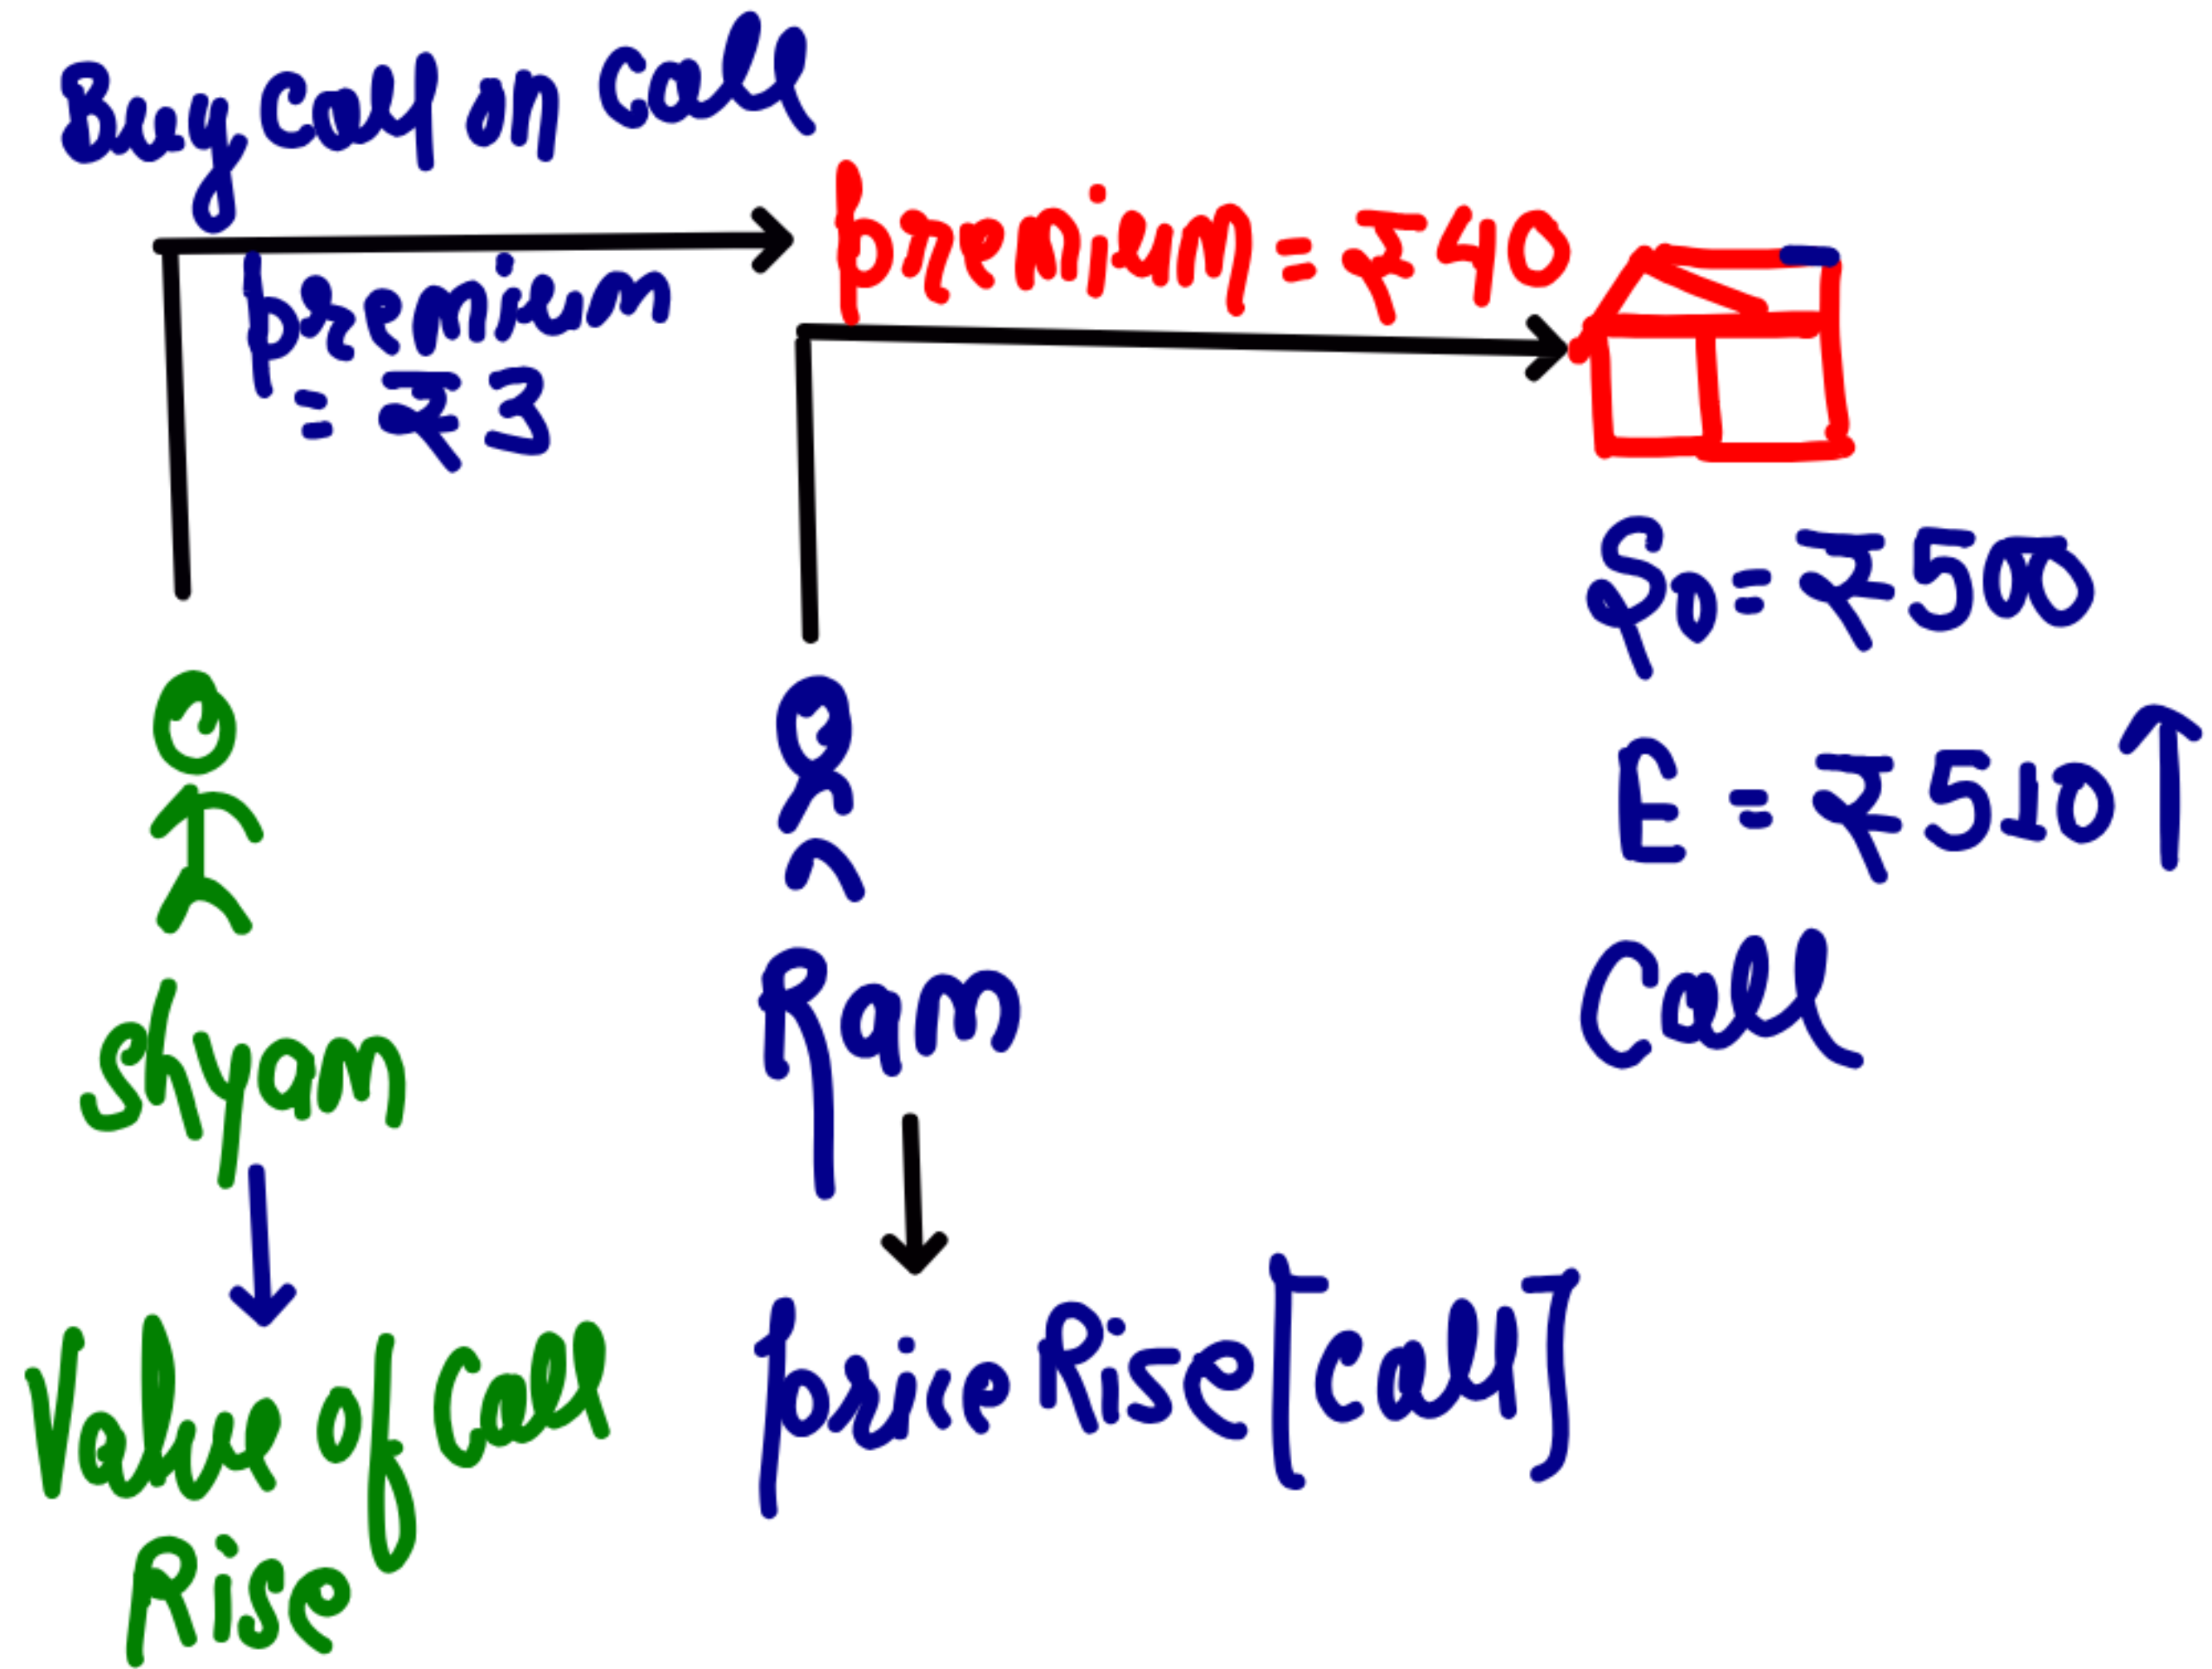 Buy Call on Call
premium
= ₹ 3
premium = ₹40
S0 = ₹500
E = ₹510
Call
Shyam
Ram
Value of Call
Rise
price Rise [Call]